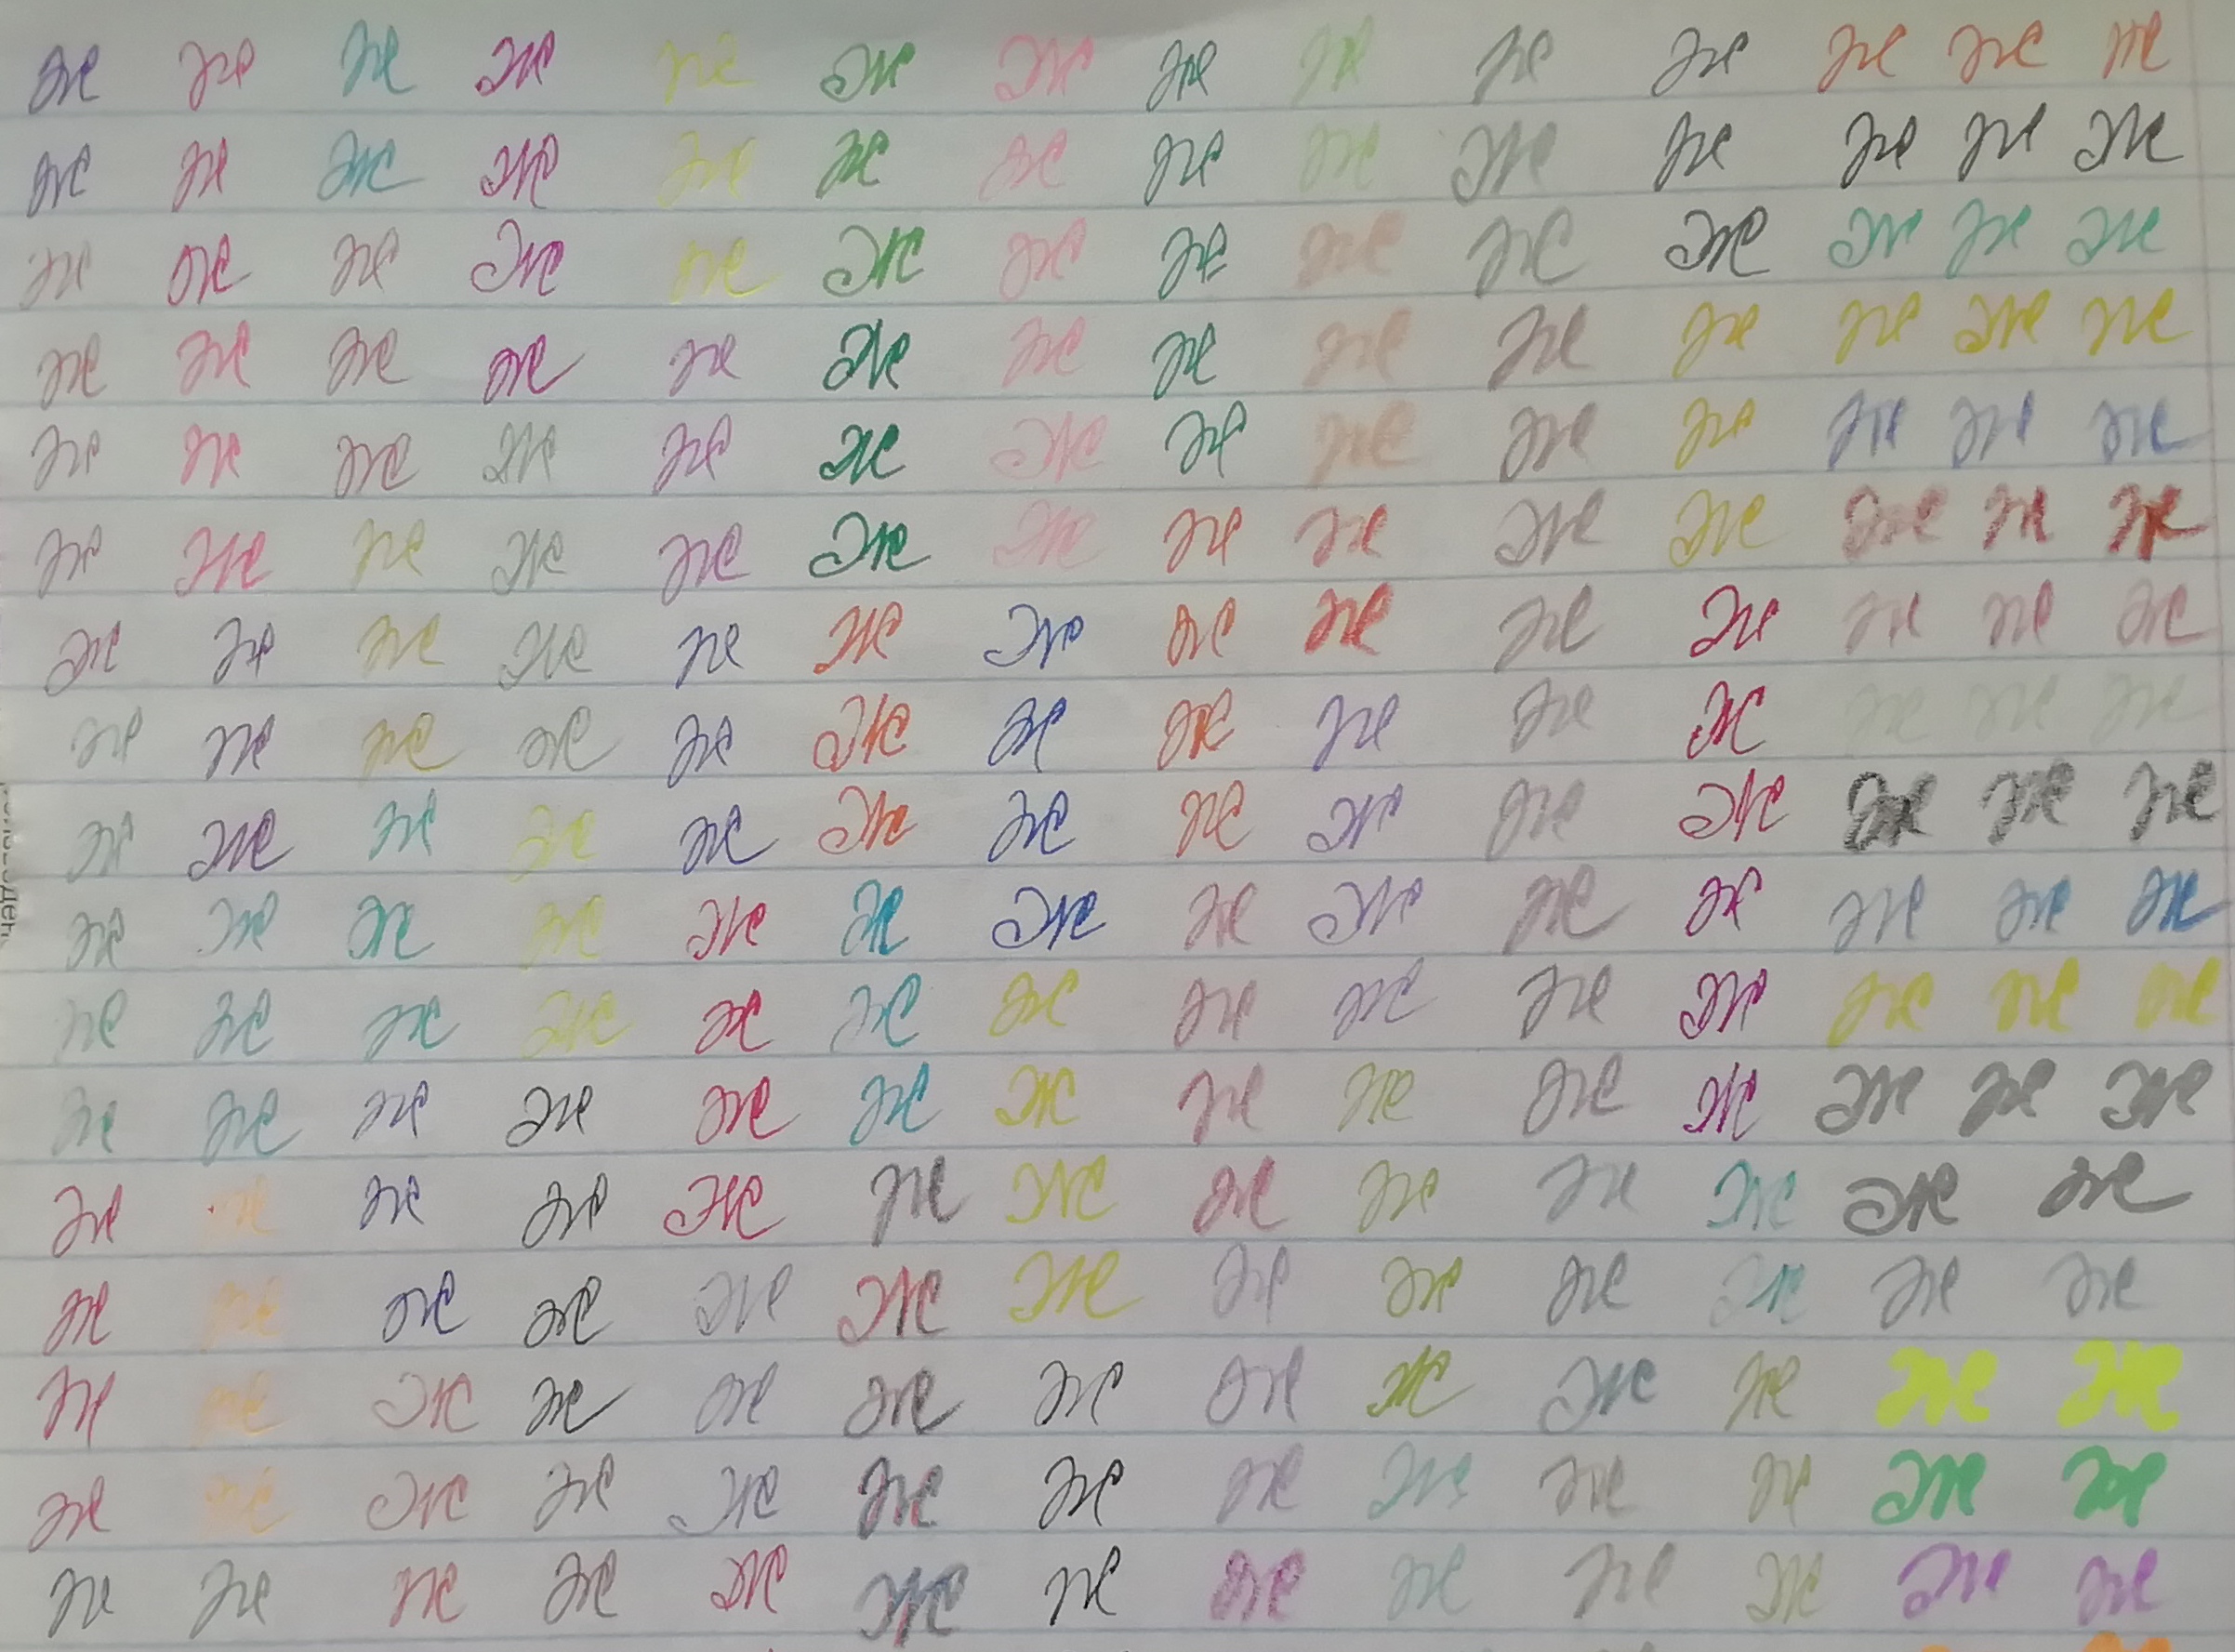 Ж Ж Ж Ж Ж Ж Ж Ж Ж Ж Ж Ж Ж Ж
Ж Ж Ж Ж Ж Ж Ж Ж Ж Ж Ж Ж Ж Ж
Ж Ж Ж Ж Ж Ж Ж Ж Ж Ж Ж Ж Ж Ж
Ж Ж Ж Ж Ж Ж Ж Ж Ж Ж Ж Ж Ж Ж
Ж Ж Ж Ж Ж Ж Ж Ж Ж Ж Ж Ж Ж Ж
Ж Ж Ж Ж Ж Ж Ж Ж Ж Ж Ж Ж Ж Ж
Ж Ж Ж Ж Ж Ж Ж Ж Ж Ж Ж Ж Ж Ж
Ж Ж Ж Ж Ж Ж Ж Ж Ж Ж Ж Ж Ж Ж
Ж Ж Ж Ж Ж Ж Ж Ж Ж Ж Ж Ж Ж Ж
Ж Ж Ж Ж Ж Ж Ж Ж Ж Ж Ж Ж Ж Ж
Ж Ж Ж Ж Ж Ж Ж Ж Ж Ж Ж Ж Ж Ж
Ж Ж Ж Ж Ж Ж Ж Ж Ж Ж Ж Ж Ж Ж
Ж Ж Ж Ж Ж Ж Ж Ж Ж Ж Ж Ж Ж
Ж Ж Ж Ж Ж Ж Ж Ж Ж Ж Ж Ж Ж
Ж Ж Ж Ж Ж Ж Ж Ж Ж Ж Ж Ж Ж
Ж Ж Ж Ж Ж Ж Ж Ж Ж Ж Ж Ж Ж
Ж Ж Ж Ж Ж Ж Ж Ж Ж Ж Ж Ж Ж